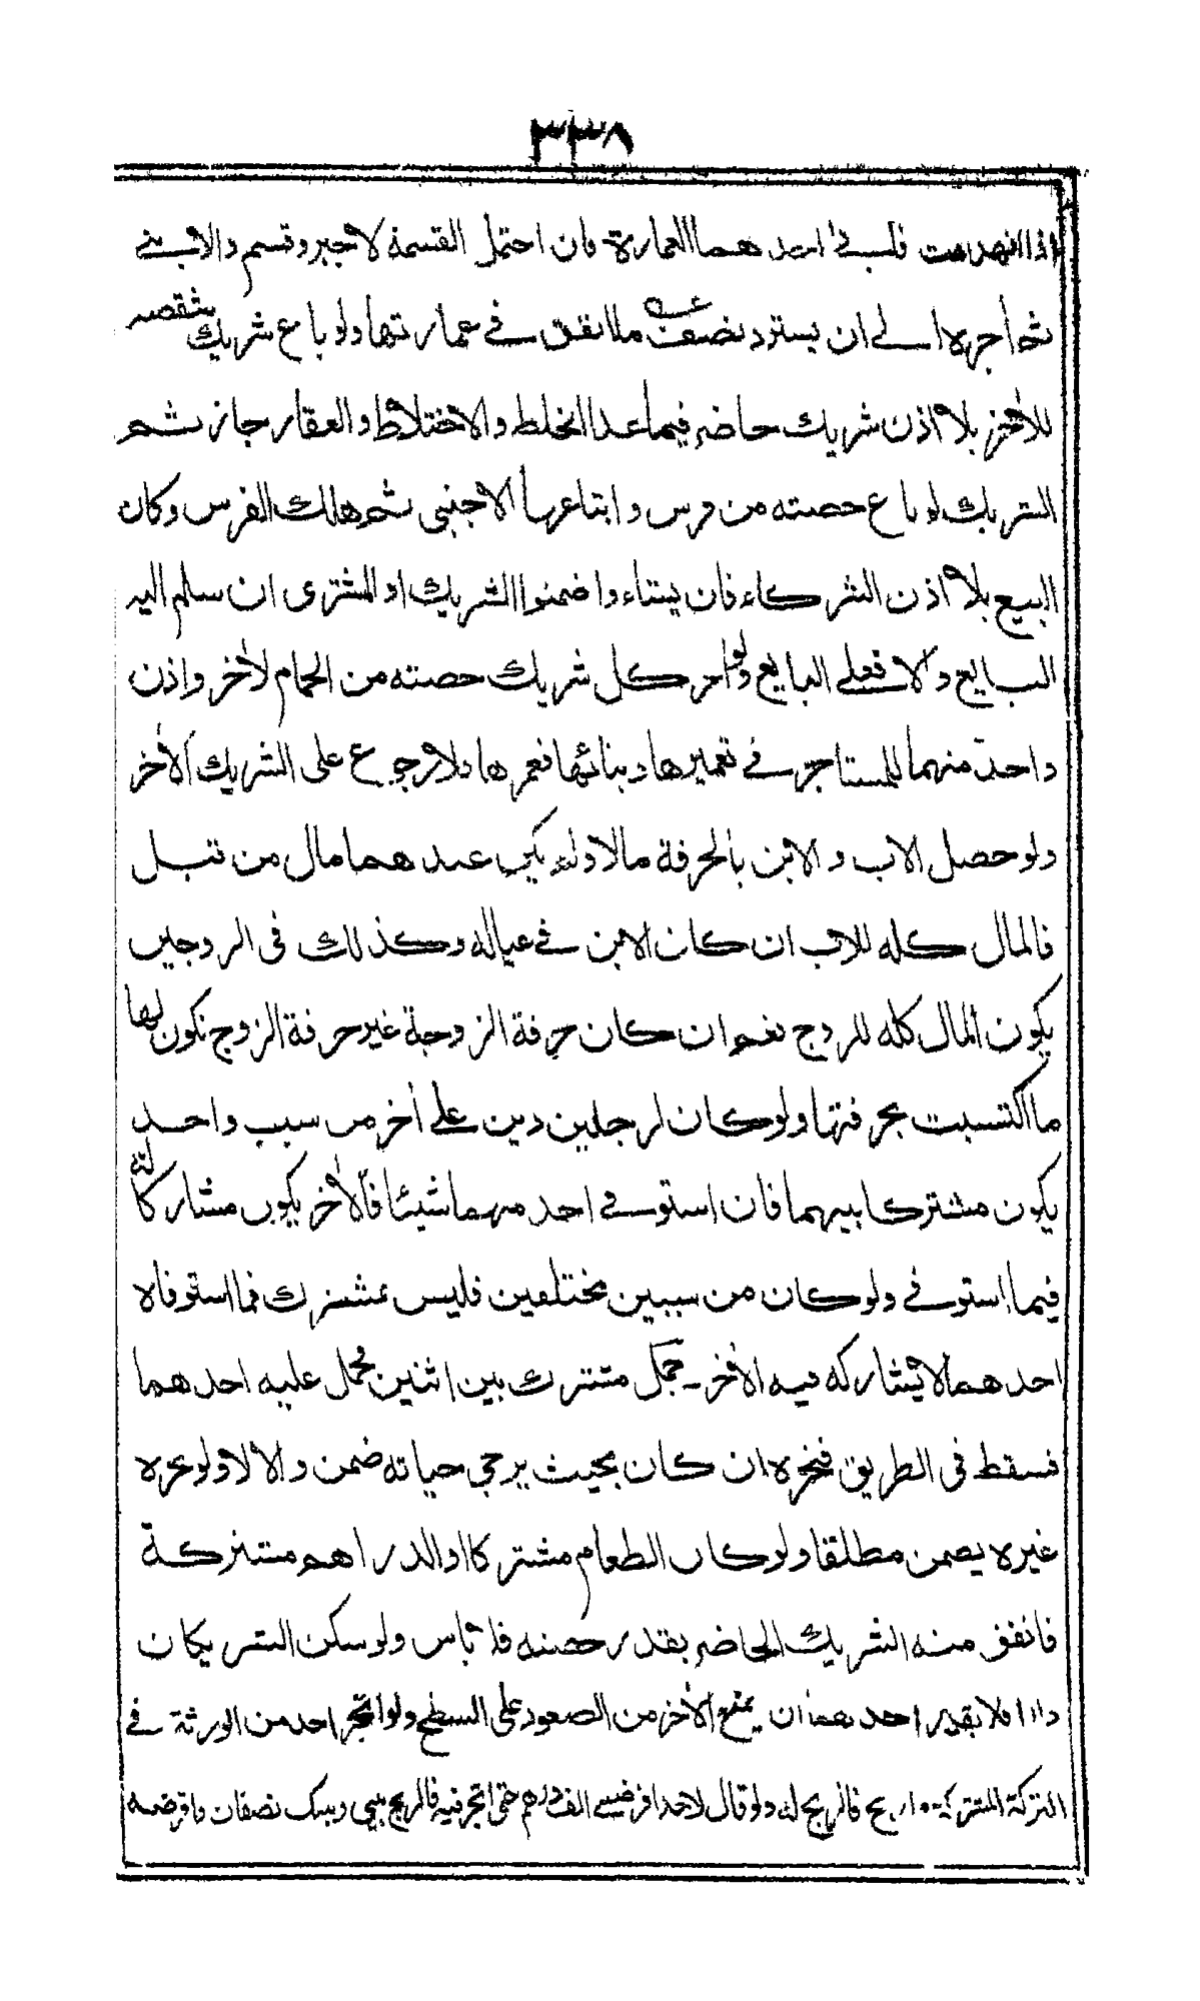 ٣٣٨
اذا انهدمت فلبى احد هما العمارة فان احتمل القسمة لا جبر وقسم والا بنى
ثم اجره الى ان يسترد نصف ما انفق في عمارتها ولو باع شريك شقصه
للاخر بلا اذن شريك حاضر فيما عدا الخلط والاختلاط والعقار جاز ثم
الشريك لو باع حصته من فرس وابتاعها الاجنبي ثم هالك الفرس وكان
البيع بلا اذن الشركاء فان يشاءوا ضمنوا الشريك او المشترى ان سلم اليه
البايع والا فعلى البايع ولو اجر كل شريك حصته من الحمام لاخر واذن
واحد منهما للمستاجر في تعميرها وبنائها فعمرها فلا رجوع على الشريك الاخر
ولو حصل الاب والابن بالحرفة مالا ولم يكن عند هما مال من قبل
فالمال كله للاب ان كان الابن في عياله وكذلك في الزوجين
يكون المال كله للزوج نعم ان كان حرفة الزوجة غير حرفة الزوج تكون لها
ما اكتسبت بحرفتها ولو كان لرجلين دين على اخر من سبب واحد
يكون مشتركا بينهما فان استوفى احد منهما شيئا فالاخر يكون مشاركا له
فيما استوفى ولو كان من سببين مختلفين فليس بمشترك فما استوفاه
احد هما لا يشاركه فيه الاخر ـ جمل مشترك بين اثنين حمل عليه احد هما
فسقط فى الطريق فنحره ان كان بحيث يرجى حياته ضمن والا لا ولو نحره
غيره يضمن مطلقا ولو كان الطعام مشتركا او الدراهم مشتركة
فانفق منه الشريك الحاضر بقدر حصته فلا باس ولو سكن الشريكان
دارا فلا يقدر احد هما ان يمنع الاخر من الصعود على السطح ولو اتجر احد من الورثة في
التركة المشتركة وربح فالربح له ولو قال لاحد اقرضنى الف درهم حتى اتجر فيه فالربح بينى وبينك نصفان فاقرضه